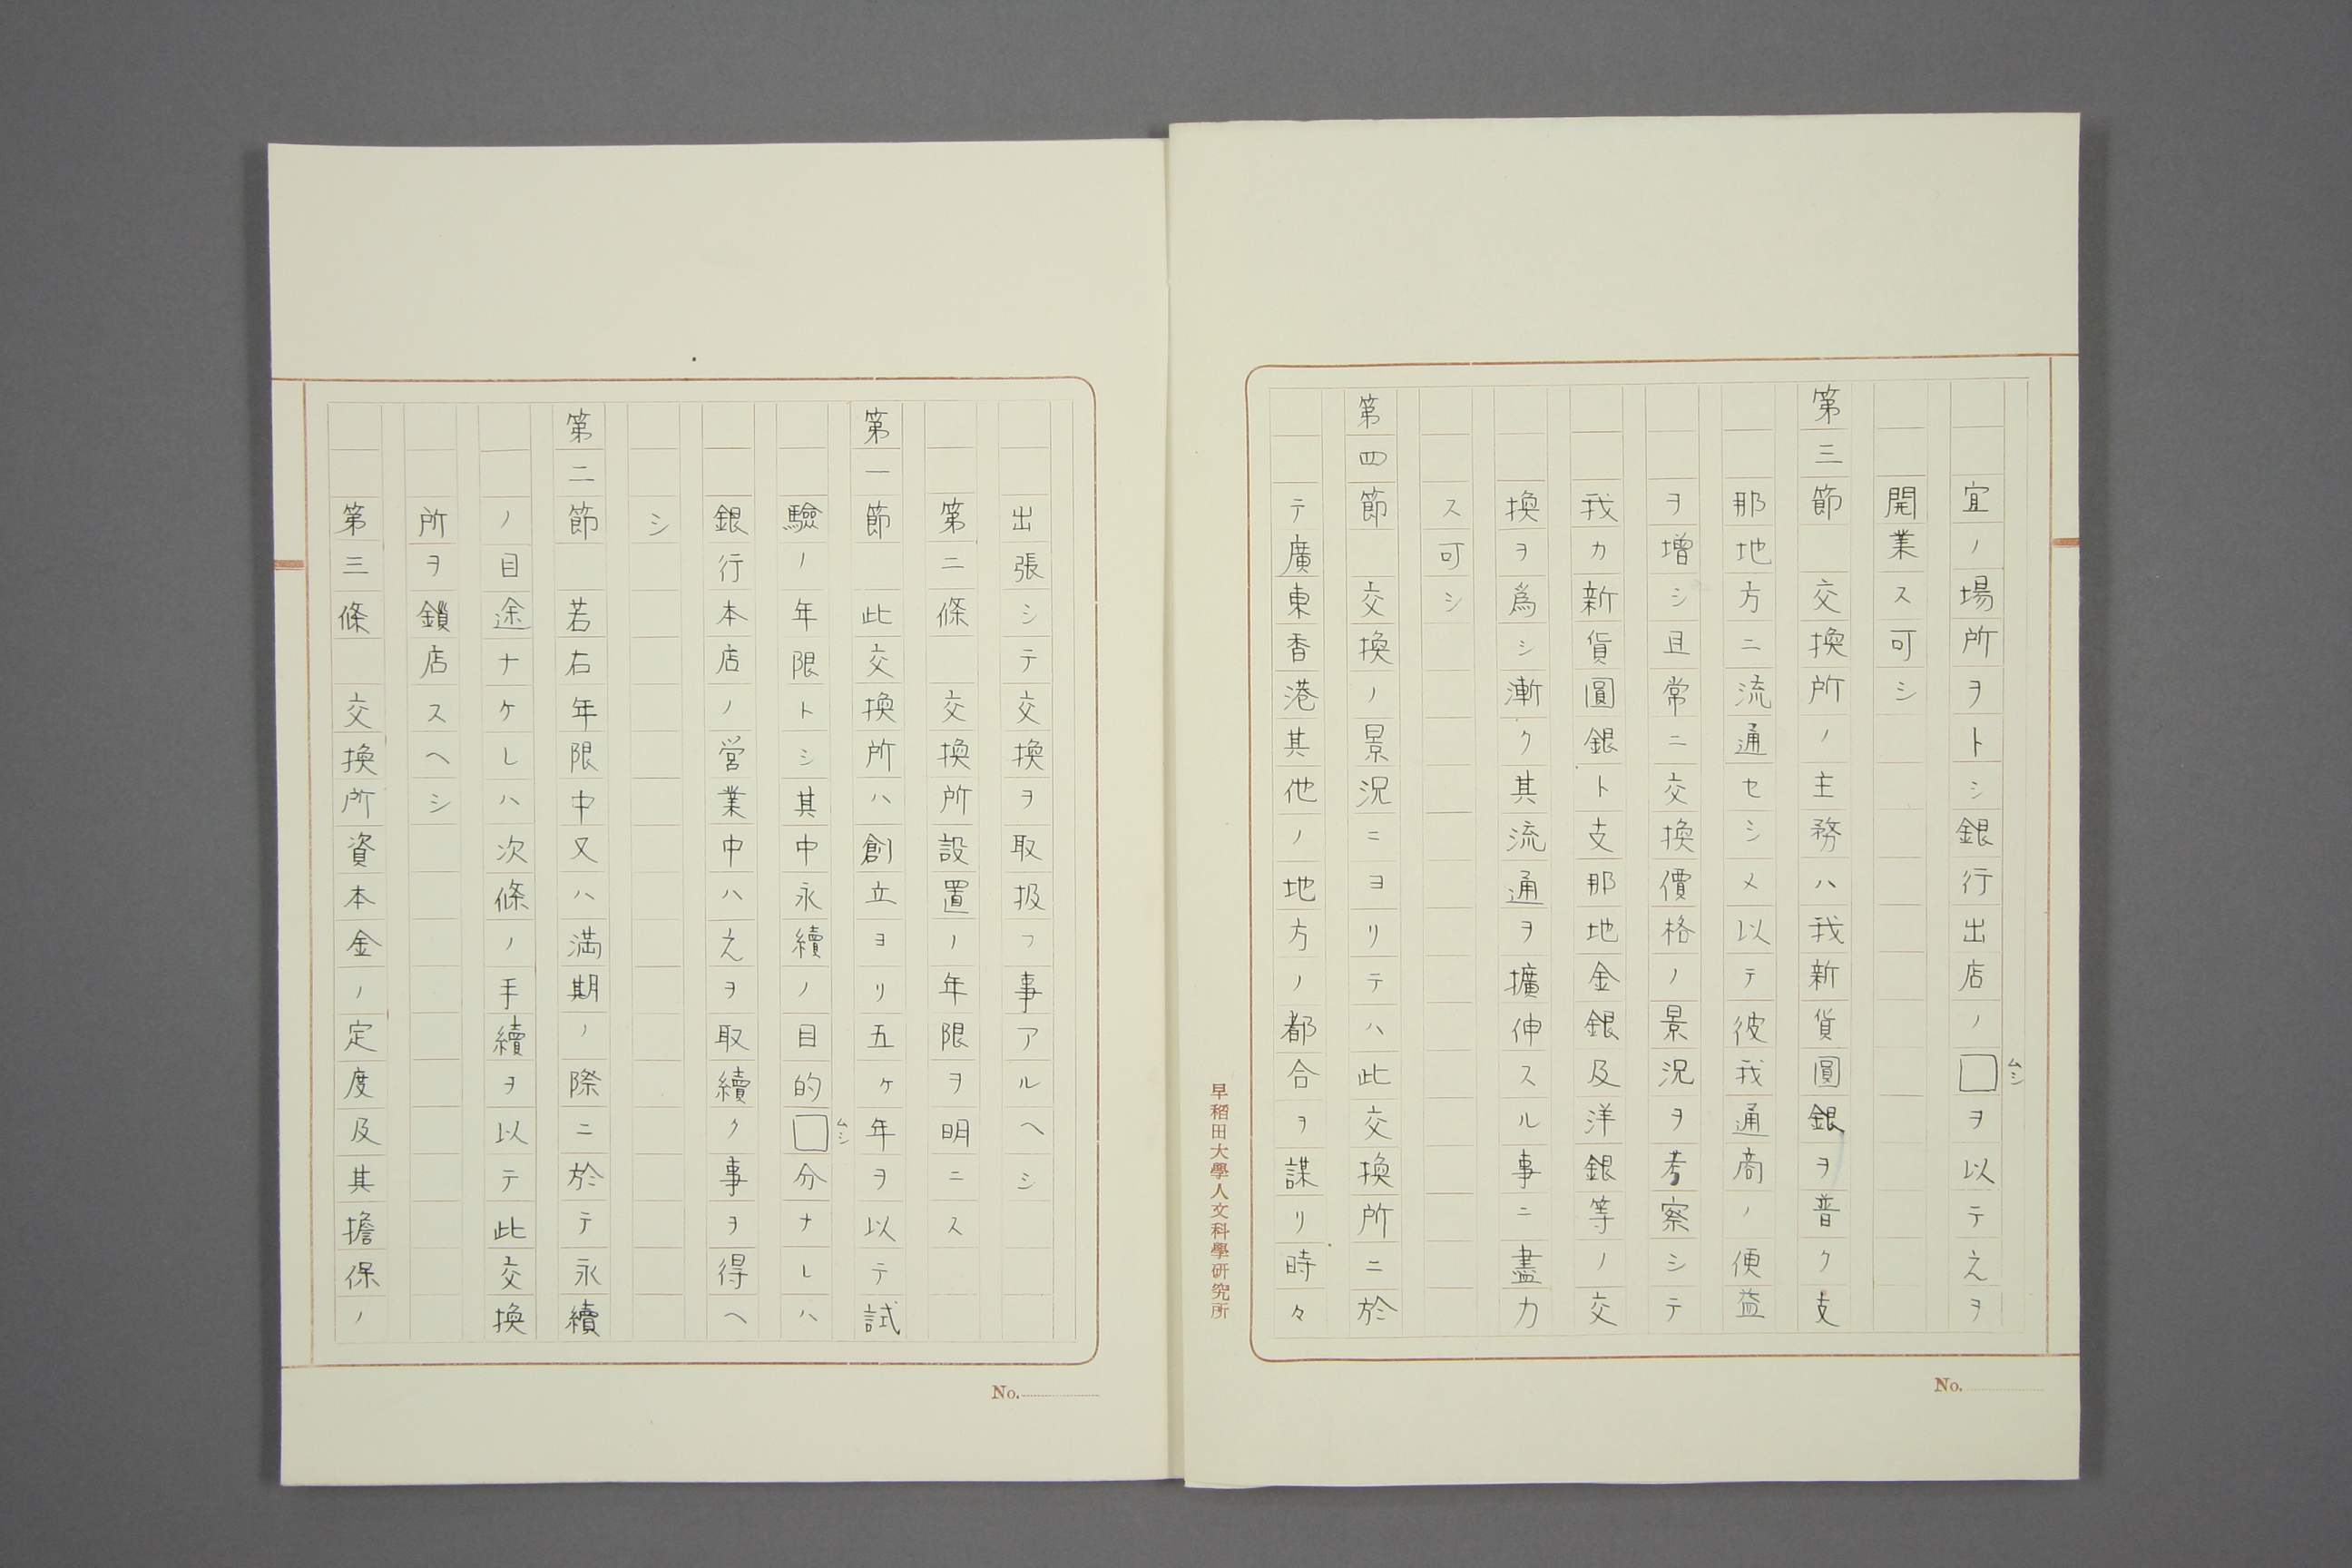 宜ノ場所ヲトシ銀行出店ノ□ヲ以テ之ヲ
ムシ
開業ス可シ
第三節　交換所ノ主務ハ我新貨圓銀ヲ普ク支
那地方ニ流通セシメ以テ彼我通商ノ便益
ヲ増シ且常ニ交換價格ノ景況ヲ考察シテ
我カ新貨圓銀ト支那地金銀及洋銀等ノ交
換ヲ爲シ漸ク其流通ヲ擴伸スル事ニ盡力
ス可シ
第四節　交換ノ景況ニヨリテハ此交換所ニ於
テ廣東香港其他ノ地方ノ都合ヲ謀リ時々
早稲田大學人文科學研究所
No.
出張シテ交換ヲ取扱フ事アルヘシ
第二條　交換所設置ノ年限ヲ明ニス
第一節　此交換所ハ創立ヨリ五ケ年ヲ以テ試
驗ノ年限トシ其中永續ノ目的□分ナレハ
ムシ
銀行本店ノ営業中ハ之ヲ取續ク事ヲ得ヘ
シ
第二節　若右年限中又ハ満期ノ際ニ於テ永續
ノ目途ナケレハ次條ノ手續ヲ以テ此交換
所ヲ鎖店スヘシ
第三條　交換所資本金ノ定度及其擔保ノ
No.